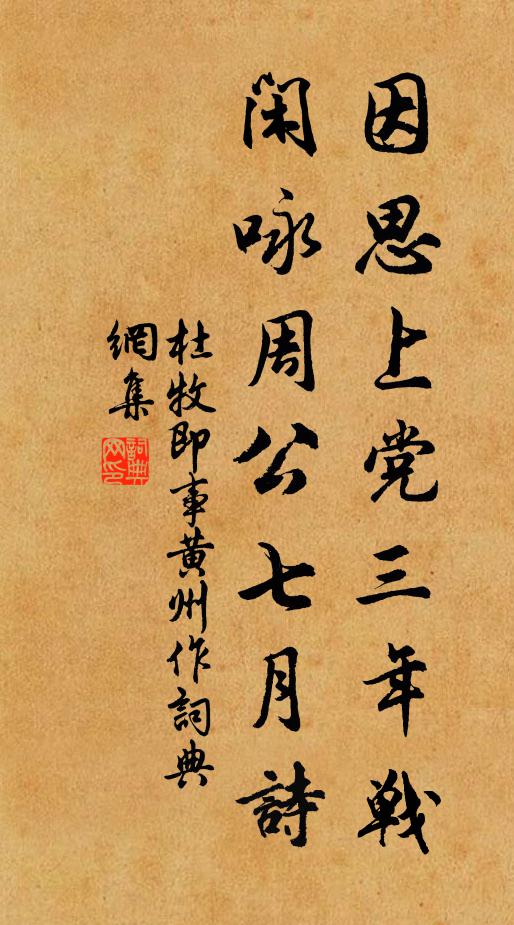 因思上党三年戦
闲咏周公七月詩
杜牧即事黄州作詞典
網集
詞典
网印